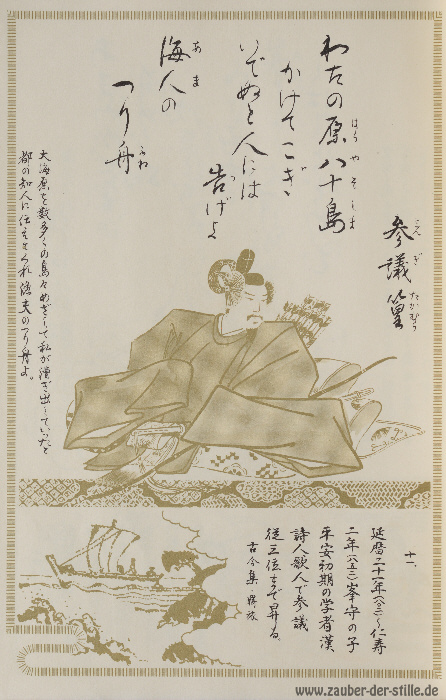 参議篁
さんぎたかむら
わたの原八十島
はらやそしま
かけてこぎ
いでぬと人には
告げよ
つ
海人の
あま
つり舟
ふね
大海原を数多くの島々めざして私が漕ぎ出していったと
都の知人に伝えてくれ漁夫のつり舟よ。
十一、
延暦二十一年(八〇二)〜仁寿
二年(八五二)岑守の子
平安初期の学者漢
詩人歌人で参議
従三位まで昇る。
古今集 羇旅
www.zauber-der-stille.de